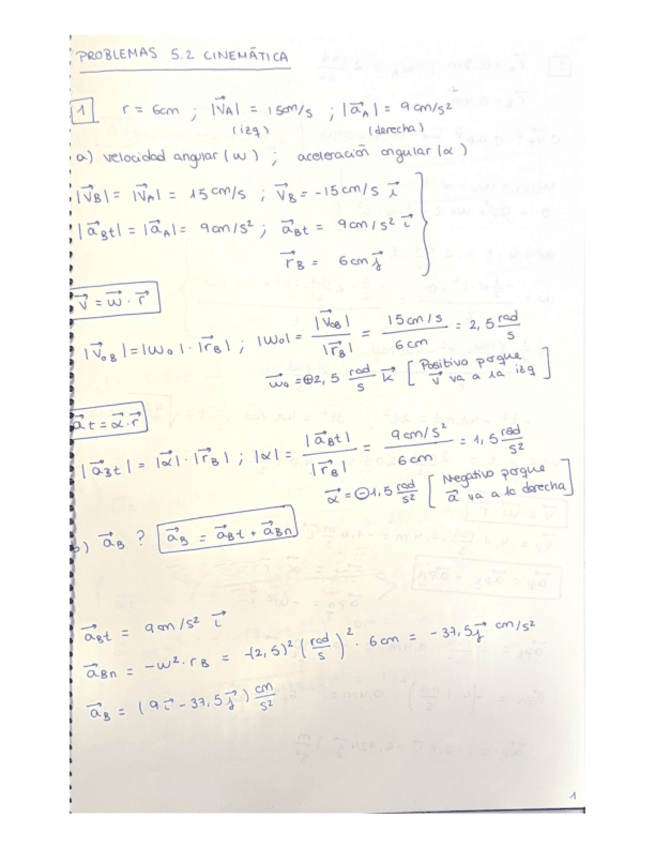 PROBLEMAS 5.2 CINEMÁTICA
1 r = 6cm ; |V⃗A| = 15cm/s ; |a⃗A| = 9cm/s²
(izq) (derecha)
a) velocidad angular (w) ; aceleración angular (α)
|V⃗B| = |V⃗A| = 15cm/s ; V⃗B = -15cm/s i⃗
|a⃗Bt| = |a⃗A| = 9cm/s² ; a⃗Bt = 9cm/s² i⃗
r⃗B = 6cm j⃗
v⃗ = w⃗ · r⃗
|V⃗oB| = |wo| · |r⃗B| ; |wo| = |V⃗oB| / |r⃗B| = 15cm/s / 6cm = 2,5 rad/s
w⃗o = ⊕2,5 rad/s k⃗ [Positivo porque v⃗ va a la izq]
a⃗t = α⃗ · r⃗
|a⃗Bt| = |α⃗| · |r⃗B| ; |α| = |a⃗Bt| / |r⃗B| = 9cm/s² / 6cm = 1,5 rad/s²
α⃗ = ⊖1,5 rad/s² [Negativo porque a⃗ va a la derecha]
b) a⃗B ? a⃗B = a⃗Bt + a⃗Bn
a⃗Bt = 9cm/s² i⃗
a⃗Bn = -w² · rB = -(2,5)² (rad/s)² · 6cm = -37,5 j⃗ cm/s²
a⃗B = (9i⃗ - 37,5j⃗) cm/s²
1